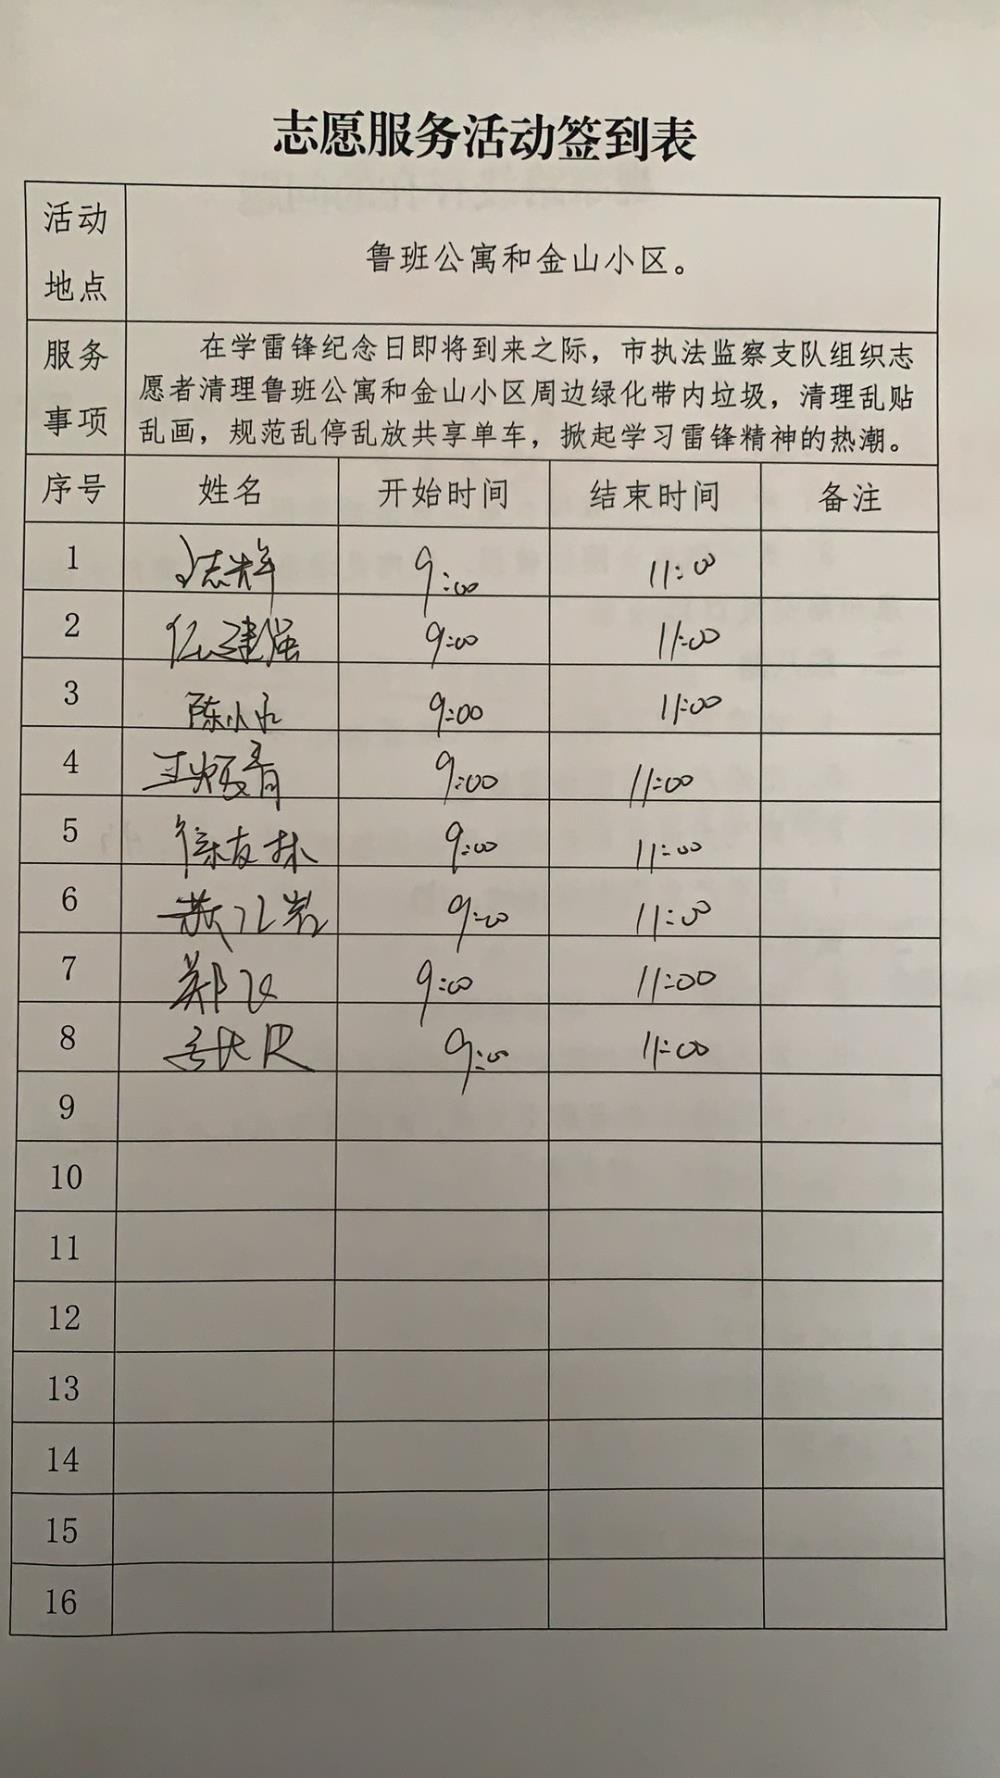 志愿服务活动签到表
活动地点
鲁班公寓和金山小区。
服务事项
在学雷锋纪念日即将到来之际，市执法监察支队组织志
愿者清理鲁班公寓和金山小区周边绿化带内垃圾，清理乱贴
乱画，规范乱停乱放共享单车，掀起学习雷锋精神的热潮。
序号 姓名 开始时间 结束时间 备注
1 9:00 11:00
2 伍建强 9:00 11:00
3 陈小 9:00 11:00
4 王 青 9:00 11:00
5 徐友林 9:00 11:00
6 9:00 11:00
7 郑飞 9:00 11:00
8 9:00 11:00
9
10
11
12
13
14
15
16